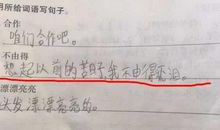 用所给词语写句子。
合作
咱们合作吧。
不由得
想起以前的苦时，我不由得落泪。
漂漂亮亮
头发漂漂亮亮的。